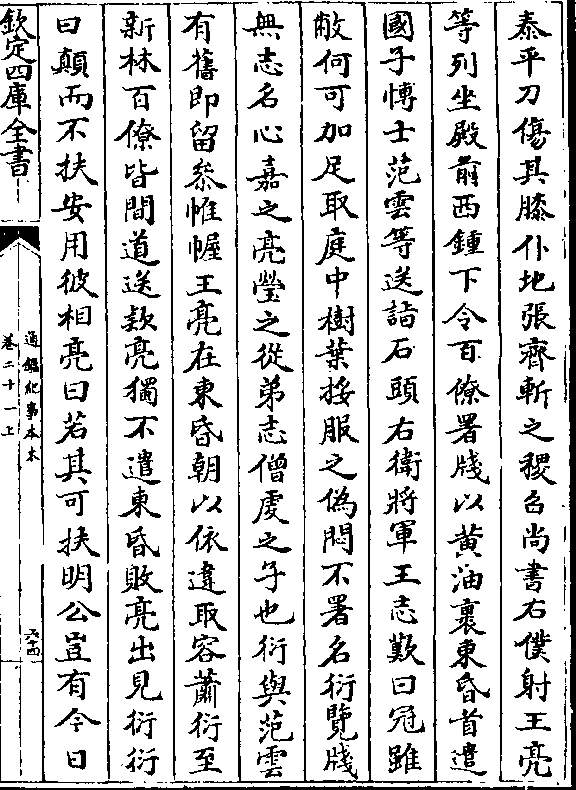 泰平刀傷其膝仆地張齊斬之稷召尚書右僕射王亮
等列坐殿前西鍾下令百僚署牋以黄油裹東昏首遣
國子愽士范雲等送詣石頭右衛將軍王志歎曰冠雖
敝何可加足取庭中樹葉挼服之偽悶不署名衍覽牋
無志名心嘉之亮瑩之從弟志僧虔之子也衍與范雲
有舊即留叅帷幄王亮在東昏朝以依違取容蕭衍至
新林百僚皆間道送款亮獨不遣東昏敗亮出見衍衍
曰顛而不扶安用彼相亮曰若其可扶明公豈有今日
欽定四庫全書
通鑑紀事本末
卷二十一上